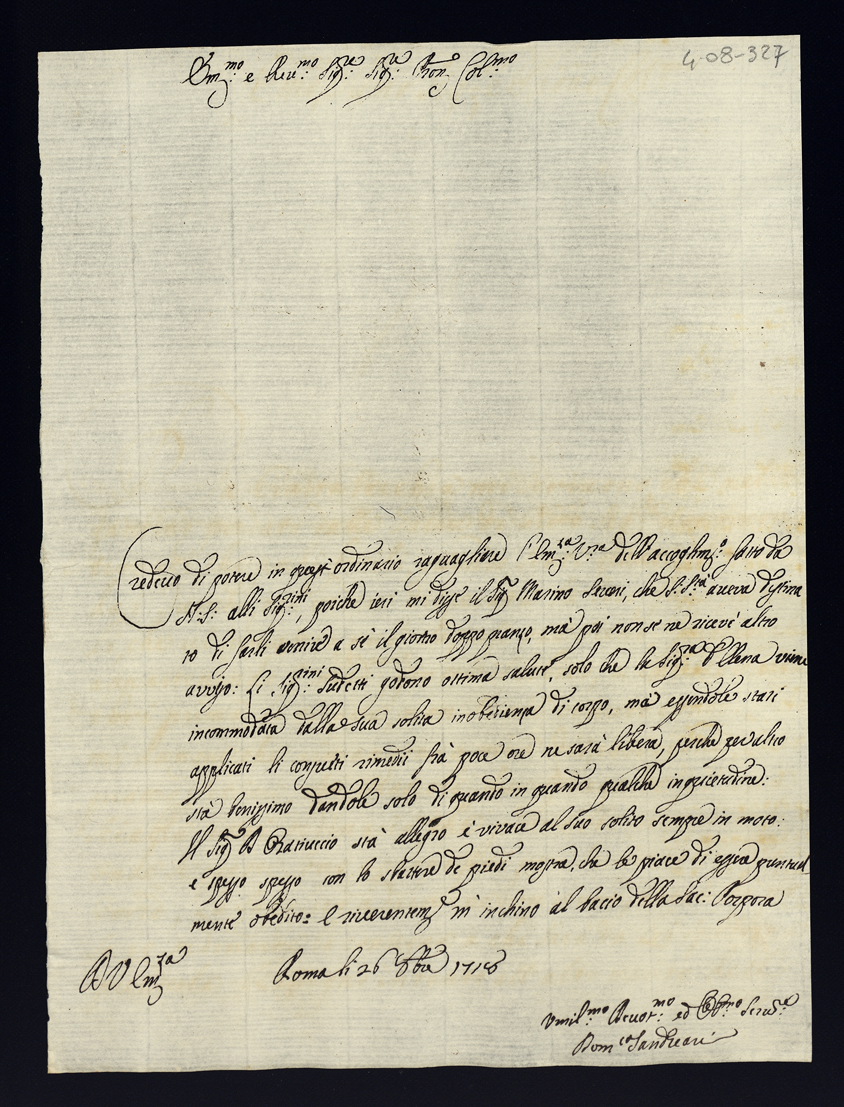 4-08-327
Em.mo e Rev.mo Sig.re Sig.re Pron Col.mo
Credevo di potere in quest'ordinario raguagliare l'Em.za V.ra dell'accoglim.o fatto da
N. S. alli Sig.rini, poiche ieri mi disse il Sig.r Marino Severi, che S. S.tà aveva destina
to di farli venire a sè il giorno doppo pranzo, mà poi non se ne ricevè altro
avviso: Li Sig.rini sudetti godono ottima salute, solo che la Sig.ra D. Elena viene
incommodata dalla sua solita inobedienza di corpo, mà essendole stati
applicati li consueti rimedii frà poce ore ne sarà libera, perche per altro
stà benissimo dandole solo di quando in quando qualche inquietudine:
Il Sig.r D. Oratiuccio stà allegro e vivace al suo solito sempre in moto:
e spesso spesso con lo sbattere de piedi mostra, che le piace di esser puntual
mente obedito: E riverentem.e m'inchino al bacio della Sac: Porpora
D V Em.za
Roma li 26 8bre 1718
Umil.mo Devot.mo ed Obl.mo Serv.re
Dom.co